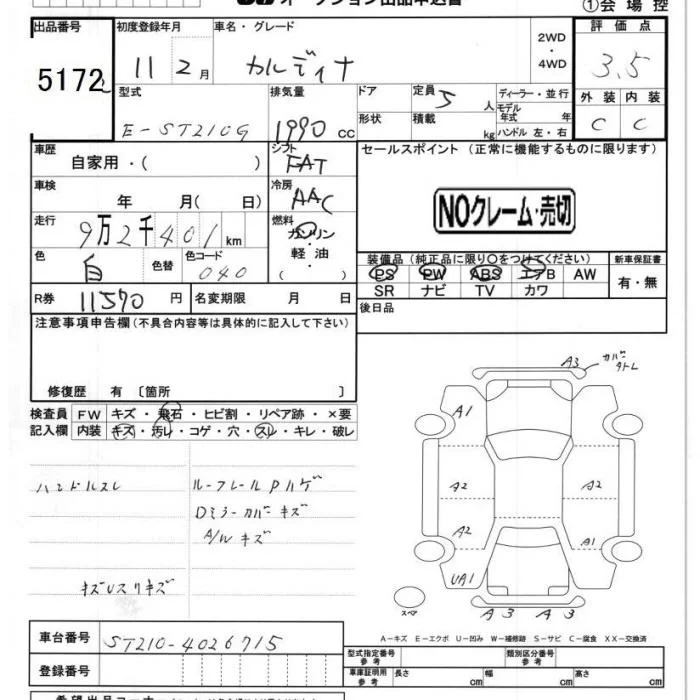 オークション出品申込書
①会場控
出品番号 初度登録年月 車名・グレード 2WD・4WD 評価点
5172 11 2月 カルディナ 3.5
型式 排気量 ドア 定員 5人 ディーラー・並行
モデル年式 年
外装 内装
E-ST210G 1990cc 形状 積載 kg ハンドル 左・右 C C
車歴 自家用・( ) シフト FAT セールスポイント (正常に機能するものに限ります)
車検 年 月( 日) 冷房 AAC
NOクレーム・売切
走行 9万2千401km 燃料 ガソリン・軽油・( )
色 白 色替 色コード 040
装備品 (純正品に限り○をつけてください) 新車保証書
PS PW ABS エアB AW 有・無
SR ナビ TV カワ
R券 11570円 名変期限 月 日 後日品
注意事項申告欄 (不具合内容等は具体的に記入して下さい)
修復歴 有 〔箇所 〕
検査員 FW キズ・飛石・ヒビ割・リペア跡・×要
記入欄 内装 キズ・汚レ・コゲ・穴・スレ・キレ・破レ
ハンドルスレ ルーフレールPハゲ
Dミラーカバーキズ
A/Wキズ
キズUスリキズ
A3 カバー
A1
A2 A2
A2 A1
UA1
スペア A3 A3
A-キズ E-エクボ U-凹み W-補修跡 S-サビ C-腐食 XX-交換済
車台番号 ST210-4026715
登録番号
型式指定番号 参考 類別区分番号 参考
車庫証明用 参考 長さ cm 幅 cm 高さ cm